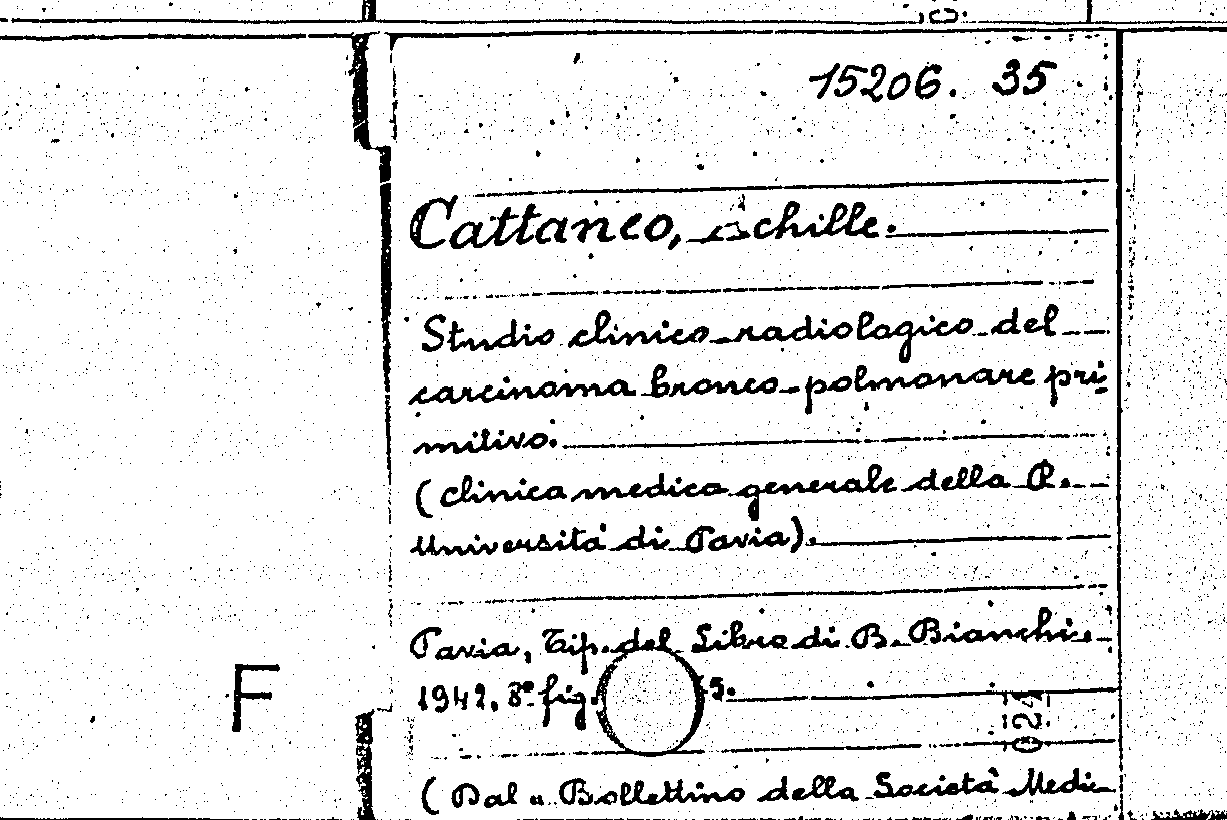 15206. 35
Cattaneo, Achille.
Studio clinico-radiologico del
carcinoma bronco-polmonare pri=
mitivo.
(Clinica medica generale della R.
Università di Pavia).
Pavia, Tip. del Libro di B. Bianchi.
1942. 8° fig. 5.
024
F
(Dal "Bollettino della Società Medi-